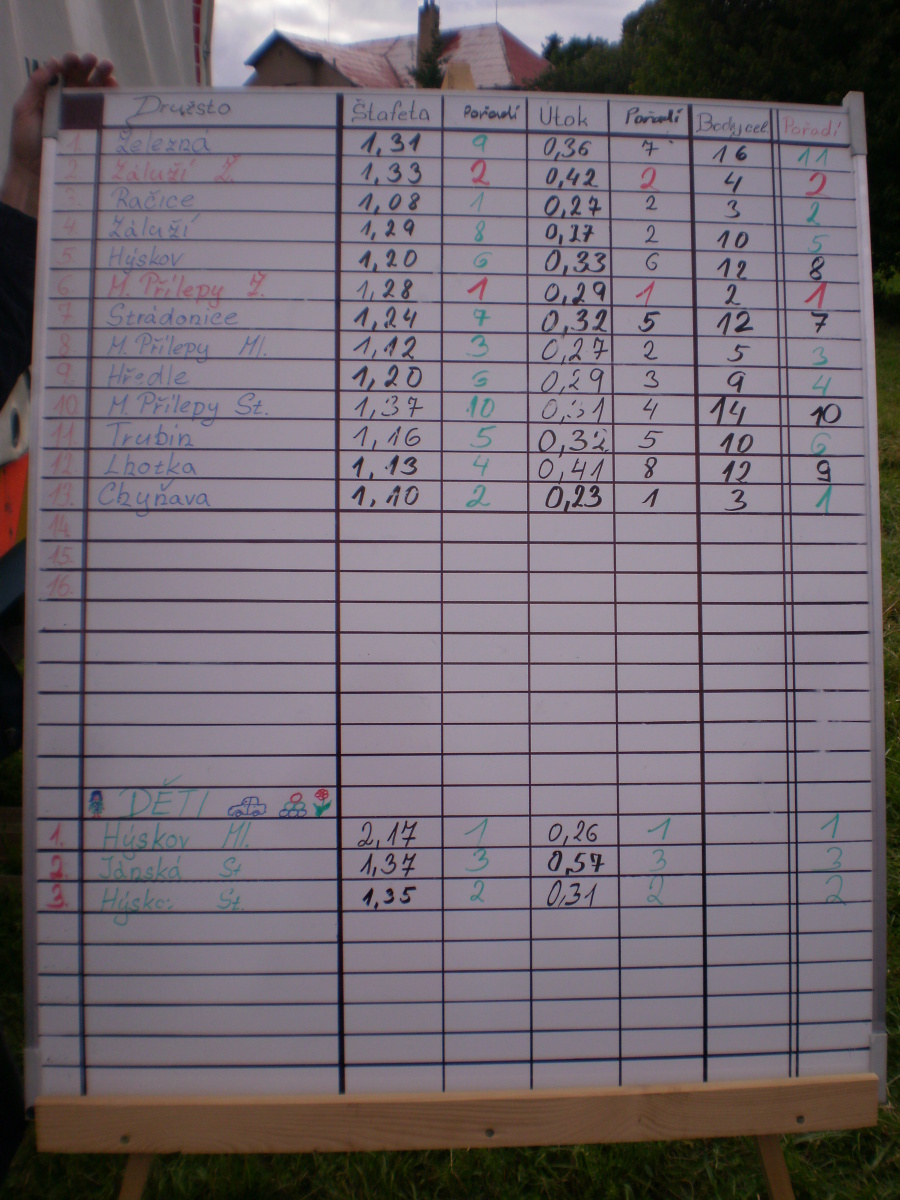 Družsto Štafeta Pořadí Útok Pořadí Body cel. Pořadí
1. Železná 1,31 9 0,36 7 16 11
2. Záluží Ž. 1,33 2 0,42 2 4 2
3. Račice 1,08 1 0,27 2 3 2
4. Záluží 1,29 8 0,27 2 10 5
5. Hýskov 1,20 6 0,33 6 12 8
6. M. Přílepy Ž. 1,28 1 0,29 1 2 1
7. Stradonice 1,24 7 0,32 5 12 7
8. M. Přílepy Ml. 1,12 3 0,27 2 5 3
9. Hředle 1,20 6 0,29 3 9 4
10. M. Přílepy St. 1,37 10 0,31 4 14 10
11. Trubín 1,16 5 0,32 5 10 6
12. Lhotka 1,13 4 0,41 8 12 9
13. Chyňava 1,10 2 0,23 1 3 1
14.
15.
16.
DĚTI
1. Hýskov Ml. 2,17 1 0,26 1 1
2. Jánská St 1,37 3 0,57 3 3
3. Hýskov St. 1,35 2 0,31 2 2